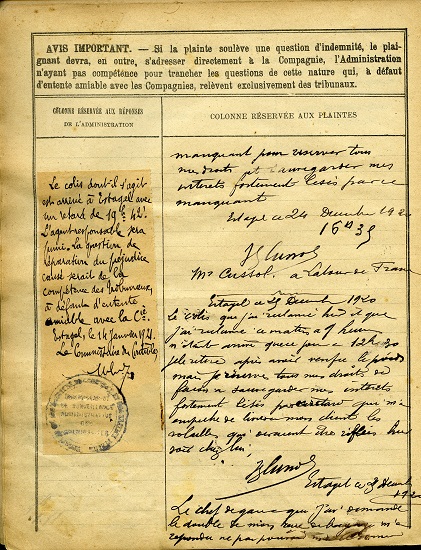 AVIS IMPORTANT. — Si la plainte soulève une question d'indemnité, le plai-
gnant devra, en outre, s'adresser directement à la Compagnie, l'Administration
n'ayant pas compétence pour trancher les questions de cette nature qui, à défaut
d'entente amiable avec les Compagnies, relèvent exclusivement des tribunaux.
COLONNE RÉSERVÉE AUX RÉPONSES
DE L'ADMINISTRATION
Le colis dont il s'agit
est arrivé à Estagel avec
un retard de 19h 42'.
L'agent responsable sera
puni. La question de
réparation du préjudice
causé serait de la
compétence des Tribunaux,
à défaut d'entente
amiable avec la Cie.
Estagel, le 14 Janvier 1921.
Le Commissaire de
COLONNE RÉSERVÉE AUX PLAINTES
manquant pour réserver tous
mes droits et sauvegarder mes
intérêts fortement lésés par ce
manquant
Estagel ce 24 Décembre 1920
16h 35
Mr a Latour de France
Estagel ce 25 Décembre 1920
le colis que j'ai réclamé hier et que
j'ai réclamé ce matin a 9 heures
n'étant arrivé que ce jour a 12h30
je le retire après avoir vérifié le poids
mais je réserve tous mes droits de
façon a sauvegarder mes intérêts
fortement lésés par ce retard qui m'a
empêché de livrer a mon client les
volailles qui devaient être hier
soir chez lui,
Estagel ce 25 Décembre
1920
Le chef de gare que j'ai demandé
le double de mon
répondu ne pas pouvoir me donner